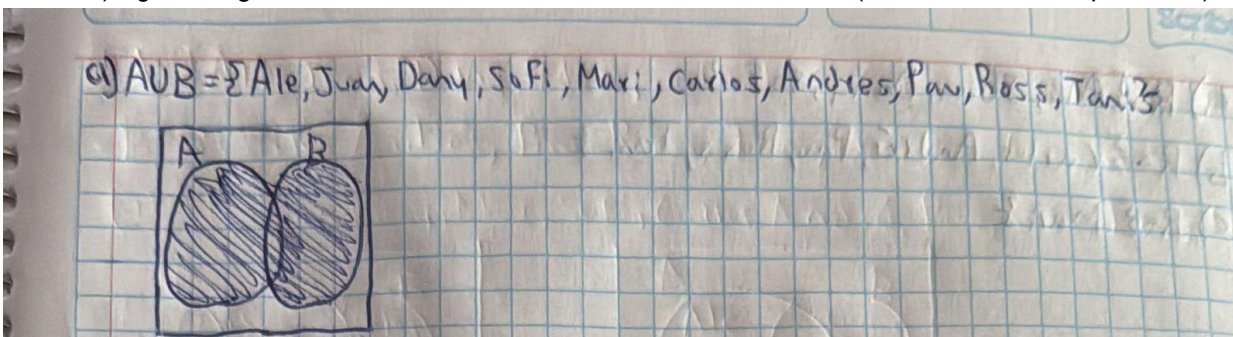 a) AUB={Ale, Juan, Dany, Sofi, Mari, Carlos, Andres, Pau, Ross, Tani}
A B